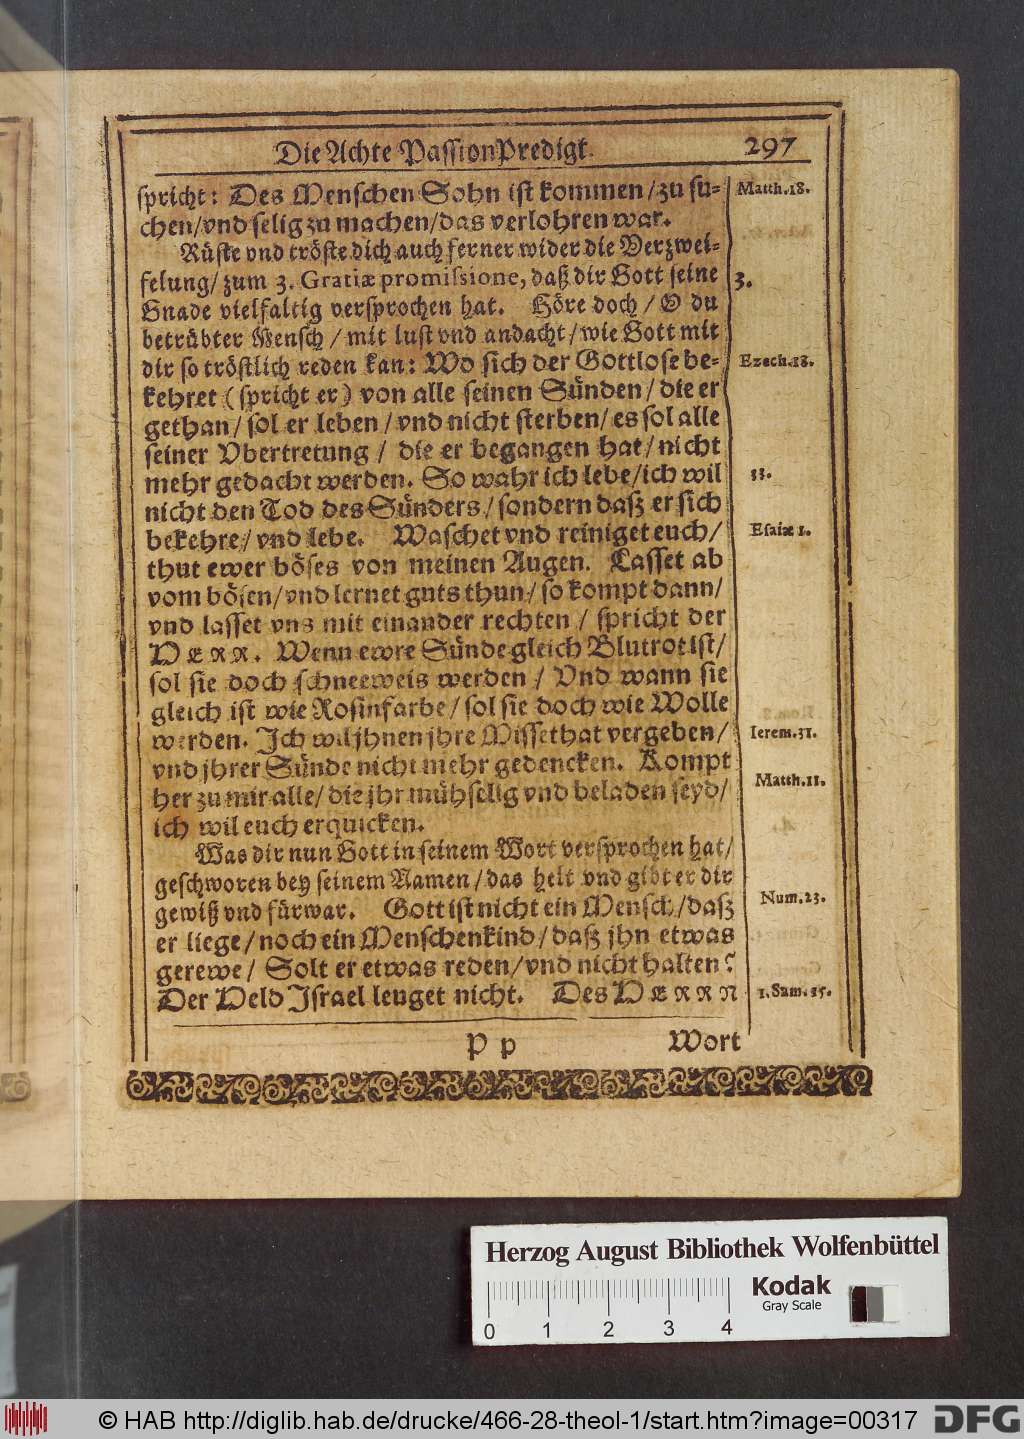 Die Achte PassionPredigt.
297
spricht: Des Menschen Sohn ist kommen/zu su-
Matth.18.
chen/vnd selig zu machen/das verlohren war.
Rüste vnd tröste dich auch ferner wider die Verzwei-
felung/ zum 3. Gratiæ promissione, daß dir Gott seine
3.
Gnade vielfaltig versprochen hat. Höre doch/ O du
betrübter Mensch/ mit lust vnd andacht/ wie Gott mit
dir so tröstlich reden kan: Wo sich der Gottlose be-
Ezech.18.
kehret (spricht er) von alle seinen Sünden/ die er
gethan/ sol er leben/ vnd nicht sterben/ es sol alle
seiner Vbertretung/ die er begangen hat/ nicht
mehr gedacht werden. So wahr ich lebe/ich wil
33.
nicht den Tod des Sünders/ sondern daß er sich
bekehre/ vnd lebe. Waschet vnd reiniget euch/
Esaiæ 1.
thut ewer böses von meinen Augen. Lasset ab
vom bösen/vnd lernet guts thun/ so kompt dann/
vnd lasset vns mit einander rechten/ spricht der
HERR. Wenn ewre Sünde gleich Blutrot ist/
sol sie doch schneeweis werden/ Vnd wann sie
gleich ist wie Rosinfarbe/ sol sie doch wie Wolle
werden. Ich wil jhnen jhre Missethat vergeben/
Ierem.31.
vnd jhrer Sünde nicht mehr gedencken. Kompt
Matth.11.
her zu mir alle/ die jhr mühselig vnd beladen seyd/
ich wil euch erquicken.
Was dir nun Gott in seinem Wort versprochen hat/
geschworen bey seinem Namen/ das helt vnd gibt er dir
gewiß vnd fürwar. Gott ist nicht ein Mensch/daß
Num.23.
er liege/ noch ein Menschenkind/ daß jhn etwas
gerewe/ Solt er etwas reden/vnd nicht halten?
Der Held Israel leuget nicht. Des HERRN
1.Sam.15.
P p
Wort
Herzog August Bibliothek Wolfenbüttel
Kodak
Gray Scale
0 1 2 3 4
© HAB http://diglib.hab.de/drucke/466-28-theol-1/start.htm?image=00317
DFG